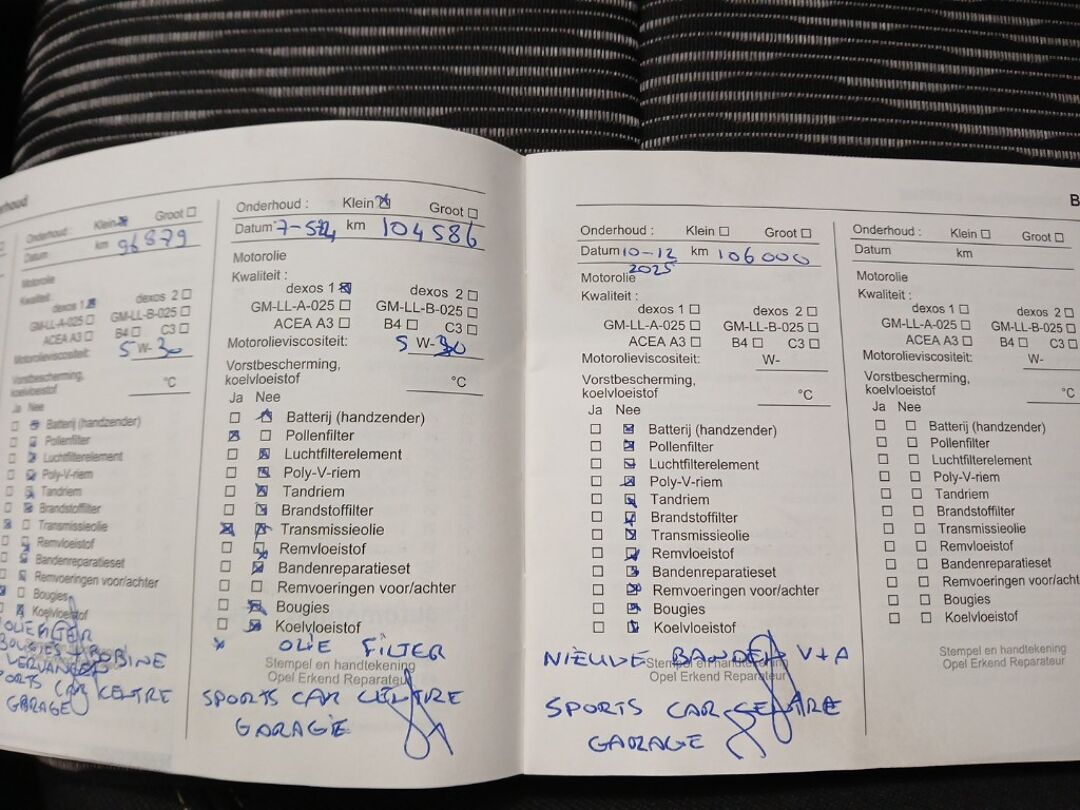 rhoud
Onderhoud : Klein Groot
km 96879
Datum
Motorolie
Kwaliteit:
dexos 1 dexos 2
GM-LL-A-025 GM-LL-B-025
ACEA A3 B4 C3
Motorolieviscositeit: 5 W-30
Vorstbescherming,
koelvloeistof °C
Ja Nee
Batterij (handzender)
Pollenfilter
Luchtfilterelement
Poly-V-riem
Tandriem
Brandstoffilter
Transmissieolie
Remvloeistof
Bandenreparatieset
Remvoeringen voor/achter
Bougies
Koelvloeistof
OLIEFILTER
BOUGIES + BOBINE
VERVANGEN
SPORTS CAR CENTRE
GARAGE
Onderhoud : Klein Groot
Datum 7-5 km 104586
Motorolie
Kwaliteit :
dexos 1 dexos 2
GM-LL-A-025 GM-LL-B-025
ACEA A3 B4 C3
Motorolieviscositeit: 5 W-30
Vorstbescherming,
koelvloeistof °C
Ja Nee
Batterij (handzender)
Pollenfilter
Luchtfilterelement
Poly-V-riem
Tandriem
Brandstoffilter
Transmissieolie
Remvloeistof
Bandenreparatieset
Remvoeringen voor/achter
Bougies
Koelvloeistof
OLIE FILTER
Stempel en handtekening
Opel Erkend Reparateur
SPORTS CAR CENTRE
GARAGE
B
Onderhoud : Klein Groot
Datum 10-12 km 106000
2025
Motorolie
Kwaliteit :
dexos 1 dexos 2
GM-LL-A-025 GM-LL-B-025
ACEA A3 B4 C3
Motorolieviscositeit: W-
Vorstbescherming,
koelvloeistof °C
Ja Nee
Batterij (handzender)
Pollenfilter
Luchtfilterelement
Poly-V-riem
Tandriem
Brandstoffilter
Transmissieolie
Remvloeistof
Bandenreparatieset
Remvoeringen voor/achter
Bougies
Koelvloeistof
NIEUWE BANDEN V+A
Stempel en handtekening
Opel Erkend Reparateur
SPORTS CAR
GARAGE
Onderhoud : Klein Groot
Datum km
Motorolie
Kwaliteit :
dexos 1 dexos 2
GM-LL-A-025 GM-LL-B-025
ACEA A3 B4 C3
Motorolieviscositeit: W-
Vorstbescherming,
koelvloeistof °C
Ja Nee
Batterij (handzender)
Pollenfilter
Luchtfilterelement
Poly-V-riem
Tandriem
Brandstoffilter
Transmissieolie
Remvloeistof
Bandenreparatieset
Remvoeringen voor/acht
Bougies
Koelvloeistof
Stempel en handtekening
Opel Erkend Reparateur